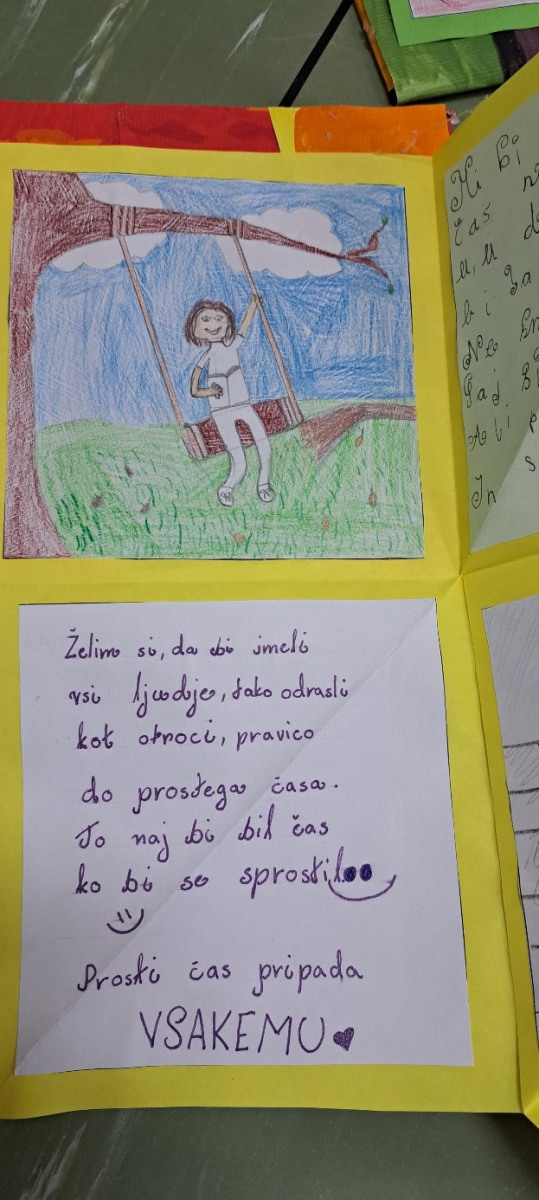 Želimo si, da bi imeli
vsi ljudje, tako odrasli
kot otroci, pravico
do prostega časa.
To naj bi bil čas
ko bi se sprostil
Prosti čas pripada
VSAKEMU
Mi bi
čas
bi
Ne
Ali
In